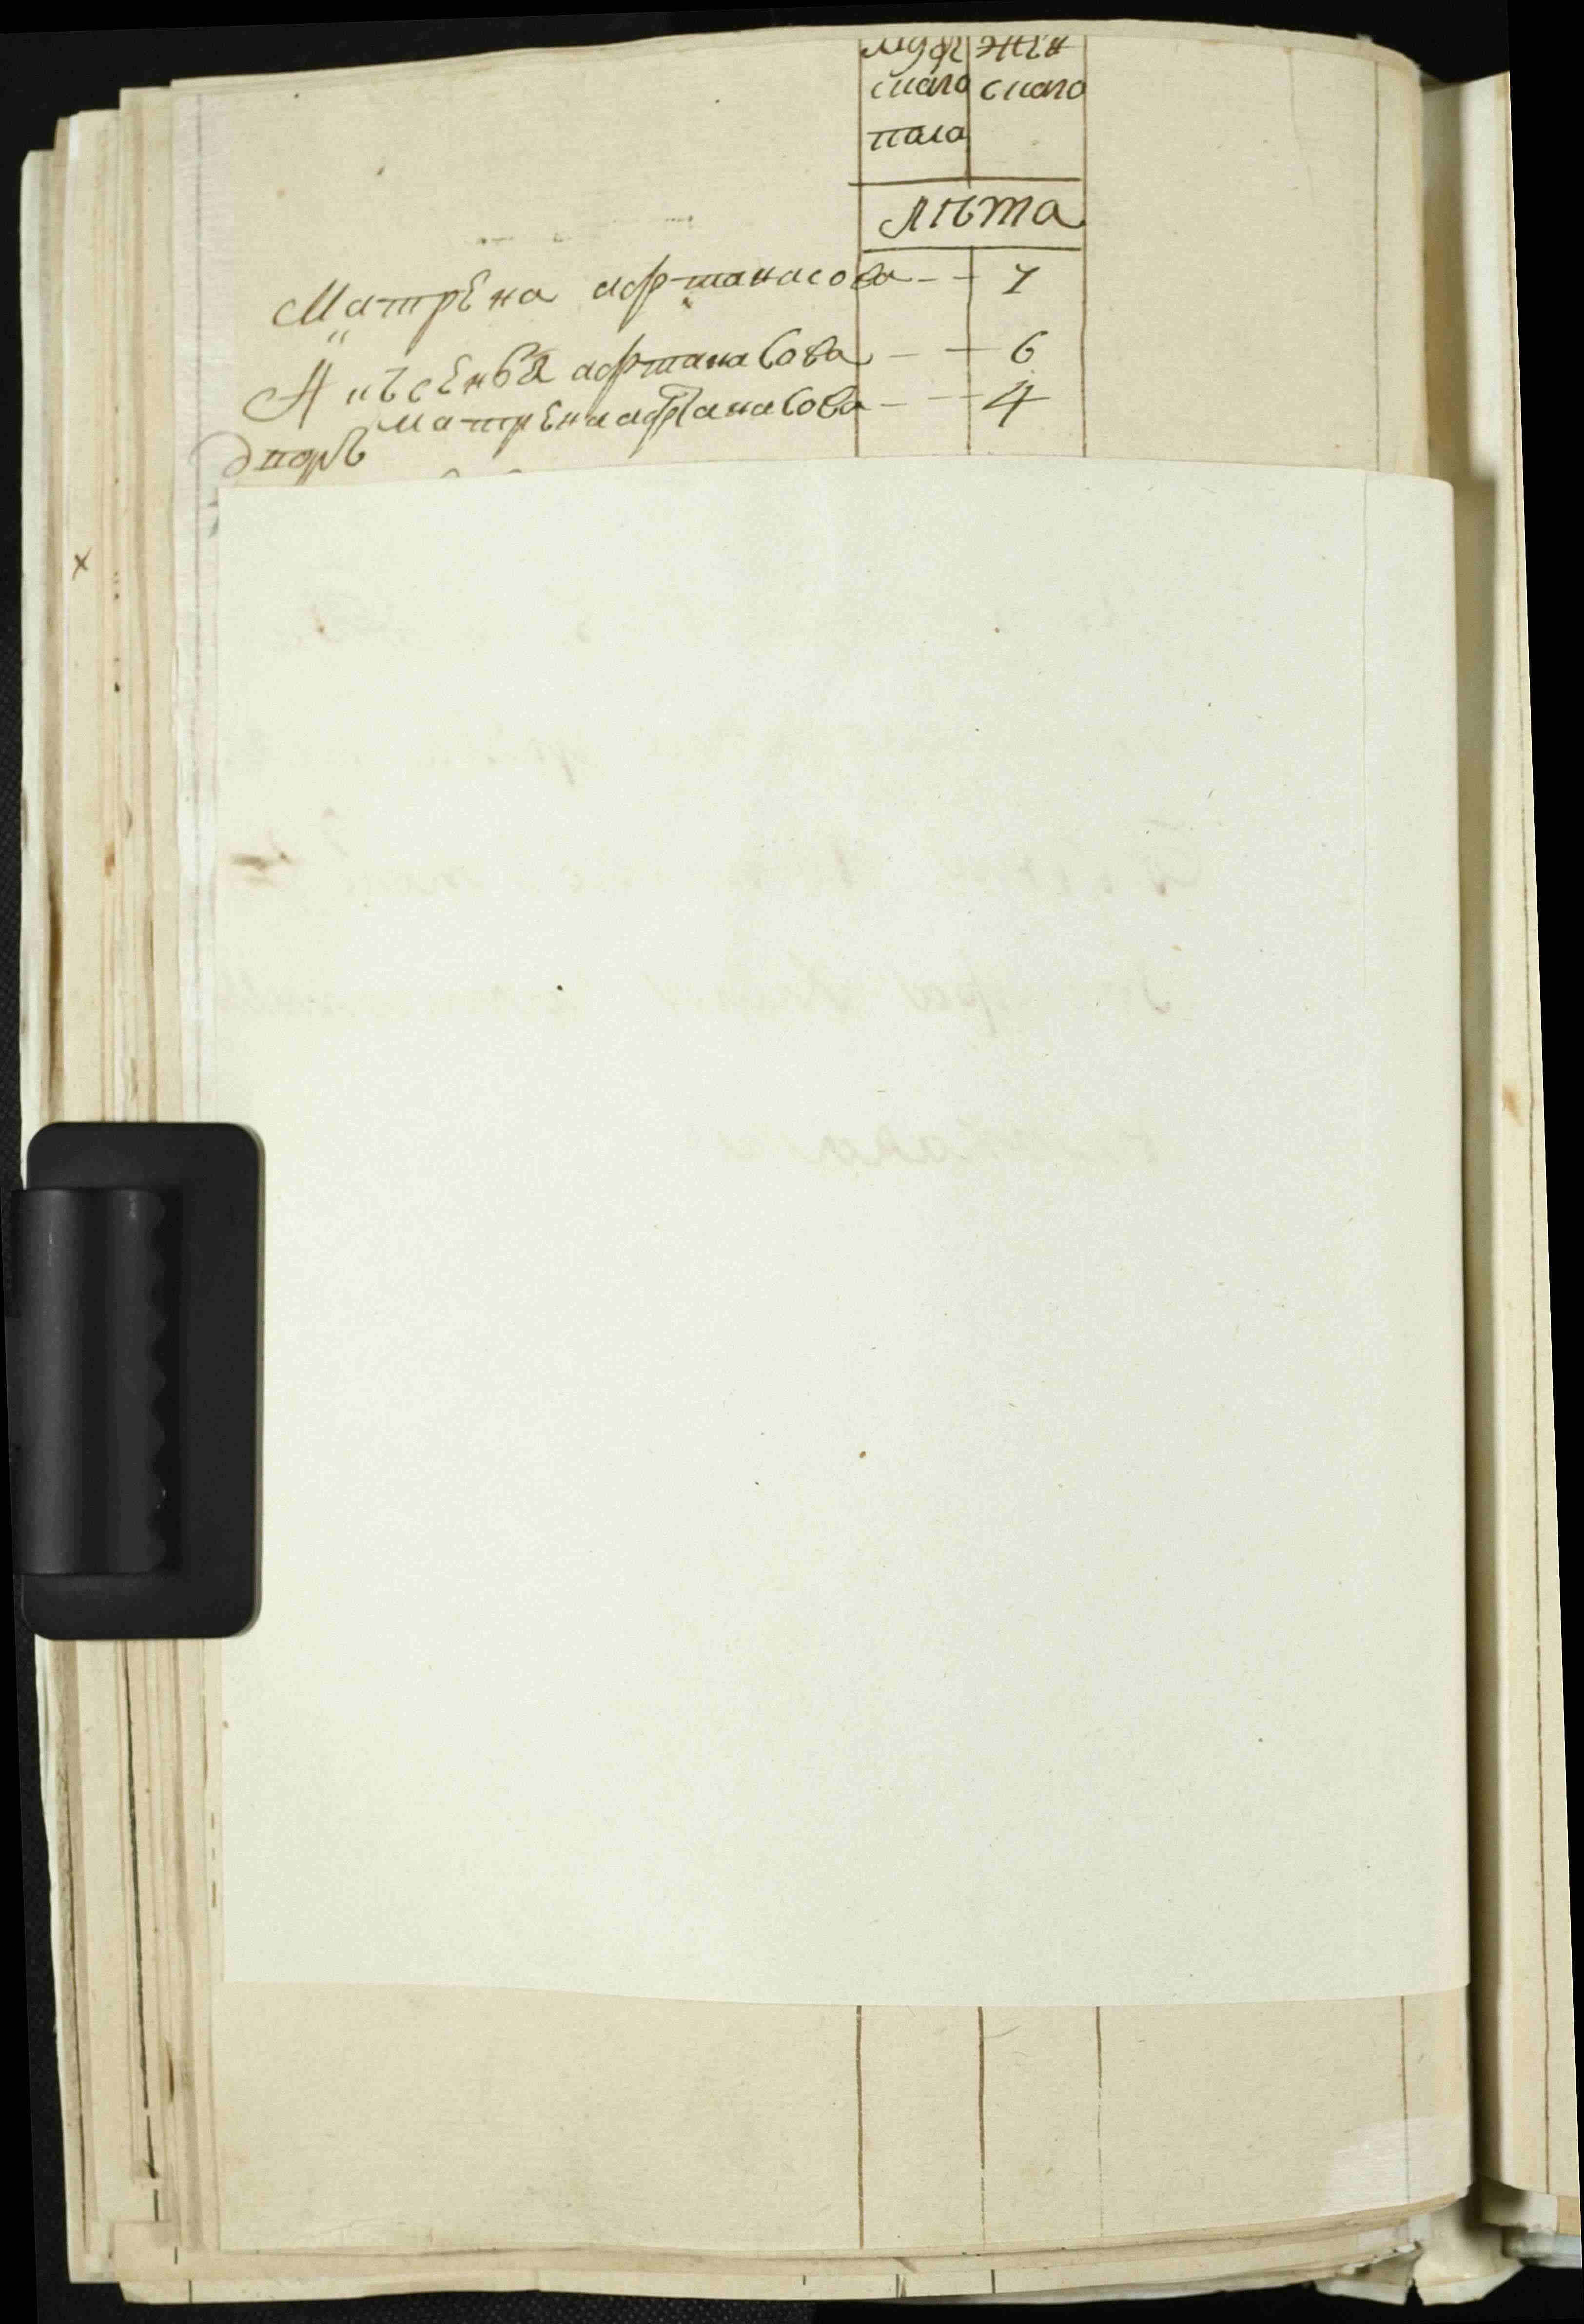 муж жен
скаго скаго
пола
лѣта
Матрена афтанасова 7
Аксенья афтанасова 6
матрена афтанасова 4